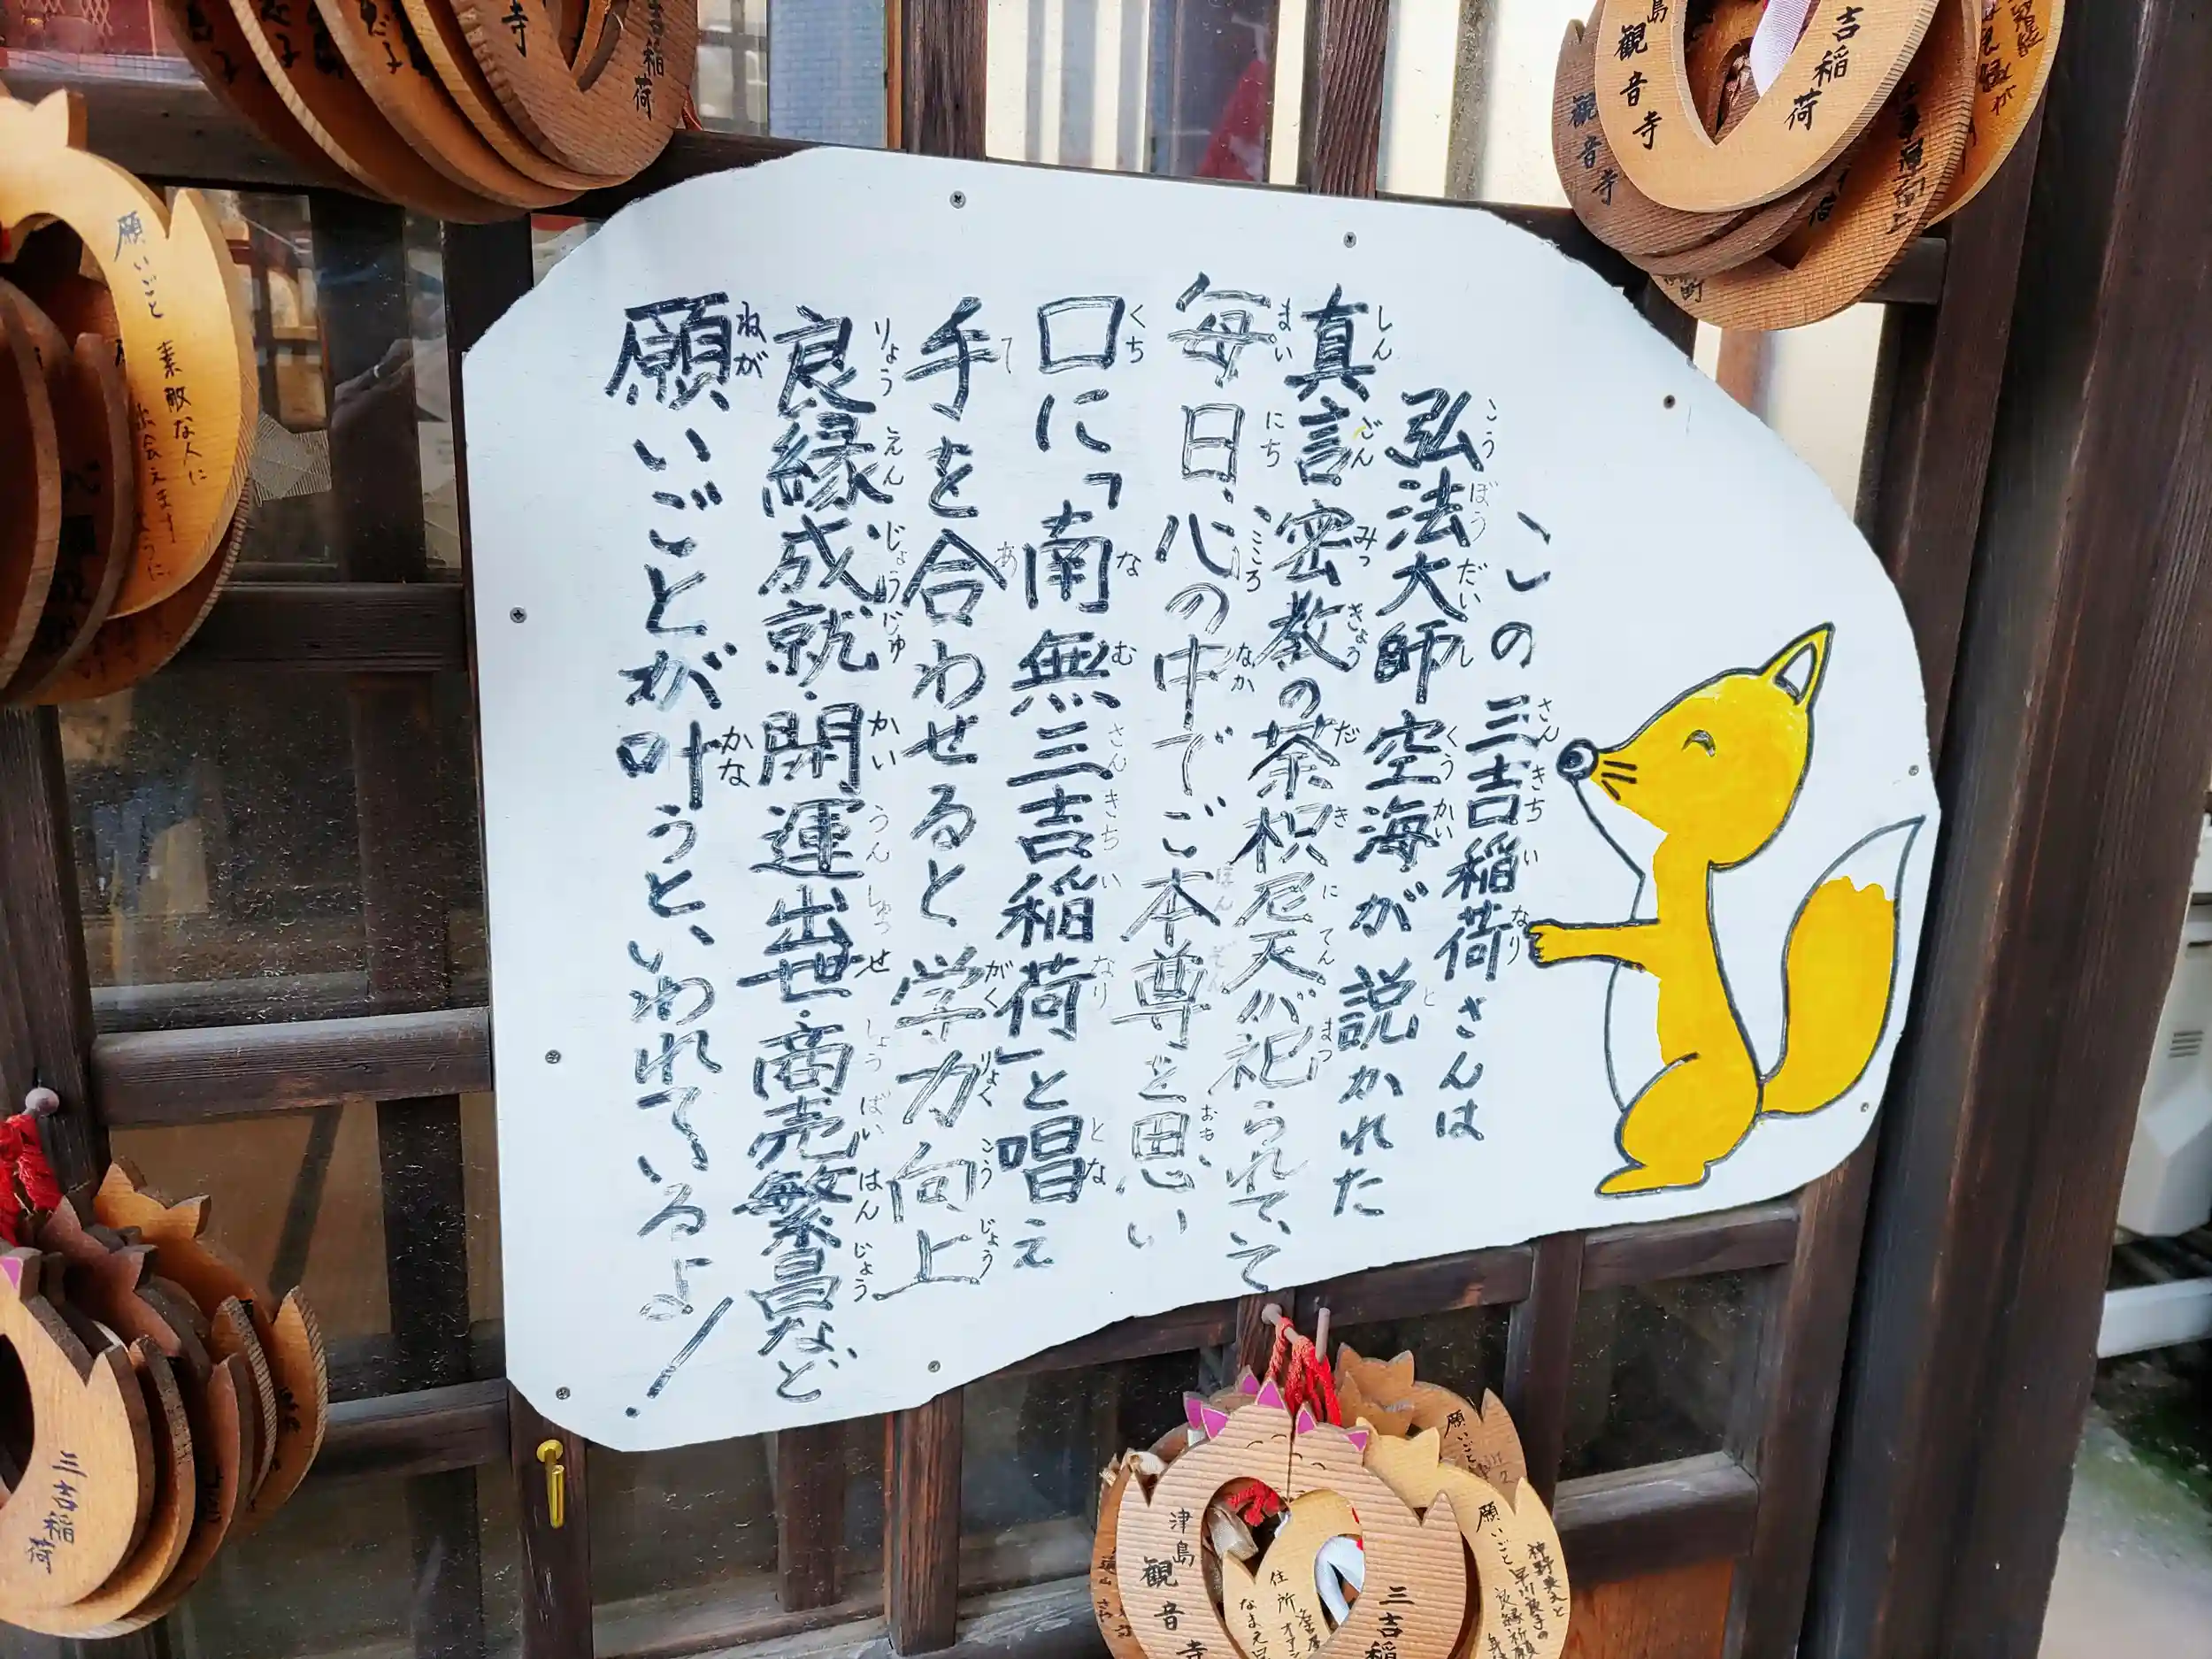 この三吉稲荷さんは
弘法大師空海が説かれた
真言密教の荼枳尼天が祀られていて
毎日、心の中でご本尊を思い
口に「南無三吉稲荷」と唱え
手を合わせると学力向上
良縁成就・開運出世・商売繁昌など
願いごとが叶うと、いわれているよ!
吉稲荷
観音寺
観音寺
寺
吉稲荷
願いごと
素敵な人に
三吉稲荷
津島
観音寺
三吉稲
住所
願いごと
願いごと